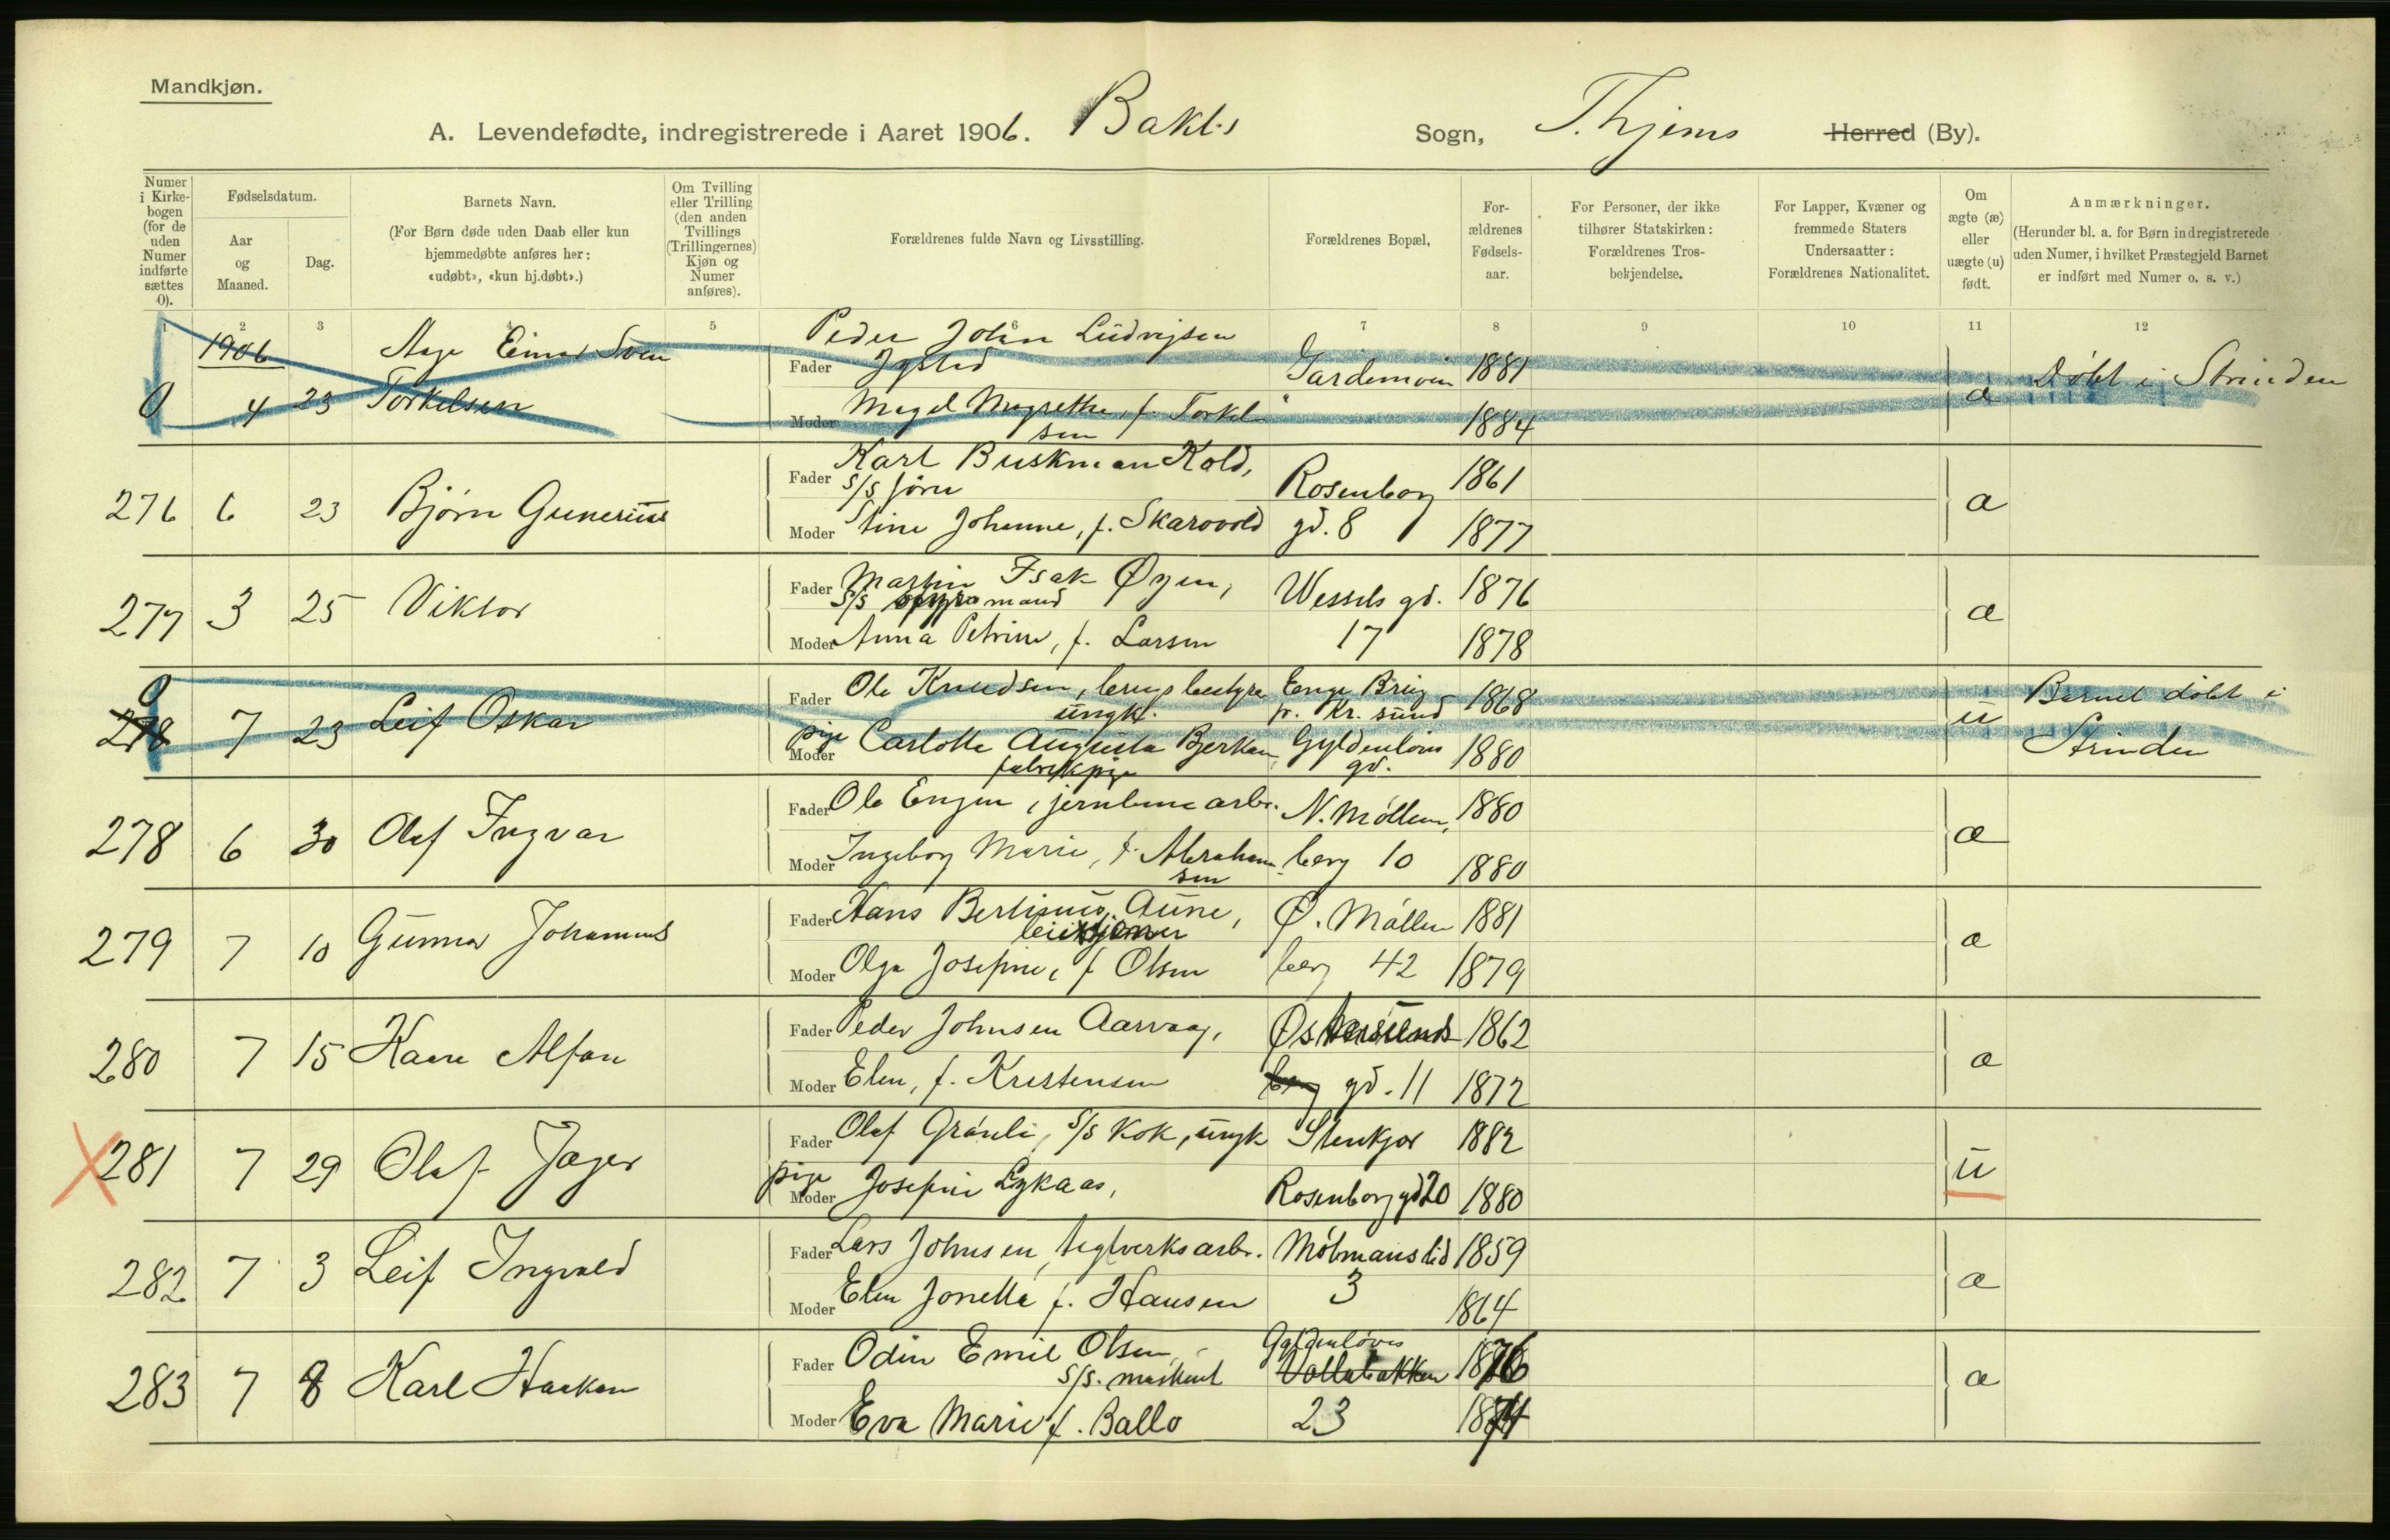 Mandkjøn.
A. Levendefødte, indregistrerede i Aaret 1906. Bakl.s Sogn, T.hjems Herred (By).
Numer i Kirke-bogen (for de uden Numer indførte sættes 0).
Fødselsdatum.
Aar og Maaned.
Dag.
Barnets Navn.
(For Børn døde uden Daab eller kun hjemmedøbte anføres her: «udøbt», «kun hj.døbt».)
Om Tvilling eller Trilling (den anden Tvillings (Trillingernes) Kjøn og Numer anføres).
Forældrenes fulde Navn og Livsstilling.
Forældrenes Bopæl,
For-ældrenes Fødsels-aar.
For Personer, der ikke tilhører Statskirken: Forældrenes Tros-bekjendelse.
For Lapper, Kvæner og fremmede Staters Undersaatter: Forældrenes Nationalitet.
Om ægte (æ) eller uægte (u) født.
Anmærkninger.
(Herunder bl. a. for Børn indregistrerede uden Numer, i hvilket Præstegjeld Barnet er indført med Numer o. s. v.)
1 2 3 4 5 6 7 8 9 10 11 12
1906 Aage Einar Sven Peder Johan Ludvigsen
Fader Gardemoen 1881 Døbt i Strinden
0 4 23 Torkelsen æ
Moder Magel Magrethe, f. Torkel- " 1884
sen
Fader Karl Buskman Kold, 1861
S/S fører Rosenborg
276 6 23 Bjørn Gunerius æ
Moder Stine Johanne, f. Skarovold gd. 8 1877
Fader Martin Isak Øyen, Wessels gd. 1876
S/S mand
277 3 25 Viktor æ
Moder Anna Petrine, f. Larsen 17 1878
0 Fader Ole Knudsen, brugsbestyrer Enge Brug 1868 Barnet døbt i
ungk. p. Kr. sund
278 7 23 Leif Oskar u
pige Moder Carlotte Augusta Bjerkan, Gyldenløves 1880 Strinden
fabrikpige gd.
Fader Ole Engen, jernbanearbr. N. Møllen, 1880
278 6 30 Olaf Ingvar æ
Moder Ingeborg Marie, f. Abraham- berg 10 1880
sen
Fader Hans Bertinus Aune, Ø. Møllen 1881
279 7 10 Gunnar Johannes æ
Moder Olga Josefine, f. Olsen berg 42 1879
Fader Peder Johnsen Aarvaag, Østersunds 1862
280 7 15 Kaare Alfon æ
Moder Elen, f. Kristensen berg gd. 11 1872
Fader Olaf Grønli, S/S Kok, ungk Stenkjær 1882
281 7 29 Olaf Jæger u
pige Moder Josefine Lykaas, Rosenborg gd 20 1880
Fader Lars Johnsen, teglverksarbr. Møbmanslid 1859
282 7 3 Leif Ingvald æ
Moder Elen Jonetta f. Hansen 3 1864
Fader Odin Emil Olsen, Gyldenløves
S/S. maskinist Vollabakken 1876
283 7 8 Karl Haakon æ
Moder Eva Marie f. Ballo 23 1874